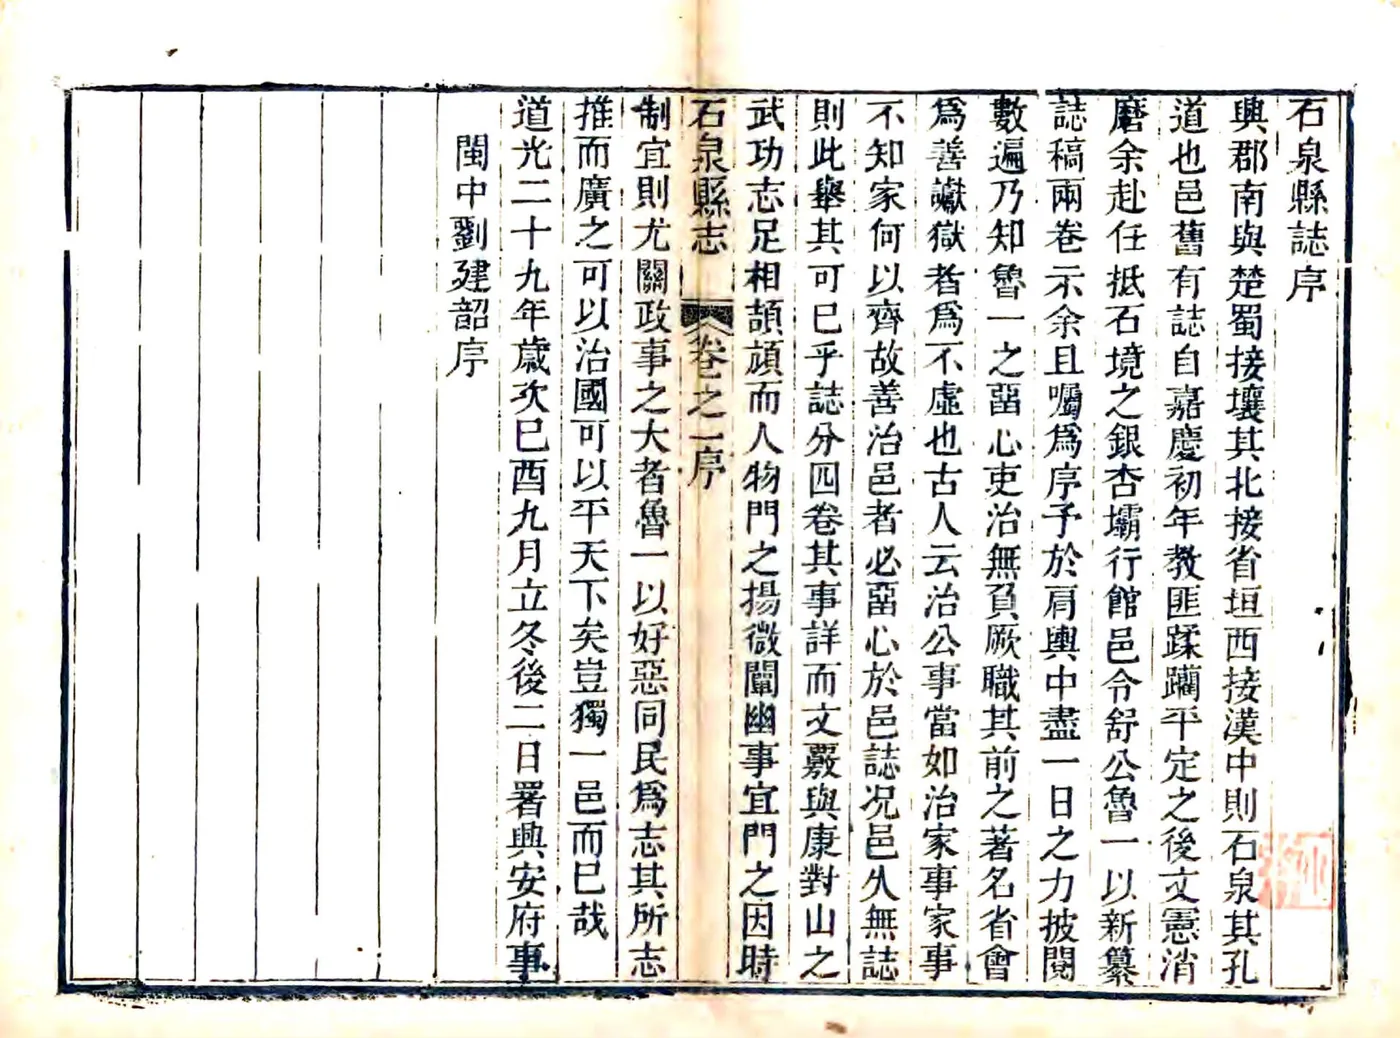 石泉縣誌序
興郡南與楚蜀接壤其北接省垣西接漢中則石泉其孔
道也邑舊有誌自嘉慶初年教匪蹂躪平定之後文憲消
磨余赴任抵石境之銀杏壩行館邑令舒公魯一以新纂
誌稿兩卷示余且囑爲序予於肩輿中盡一日之力披閱
數遍乃知魯一之畱心吏治無負厥職其前之著名省會
爲善讞獄者爲不虛也古人云治公事當如治家事家事
不知家何以齊故善治邑者必畱心於邑誌况邑久無誌
則此舉其可已乎誌分四卷其事詳而文覈與康對山之
武功志足相頡頏而人物門之揚微闡幽事宜門之因時
石泉縣志 卷之一序
制宜則尤關政事之大者魯一以好惡同民爲志其所志
推而廣之可以治國可以平天下矣豈獨一邑而已哉
道光二十九年歲次已酉九月立冬後二日署興安府事
閩中劉建韶序